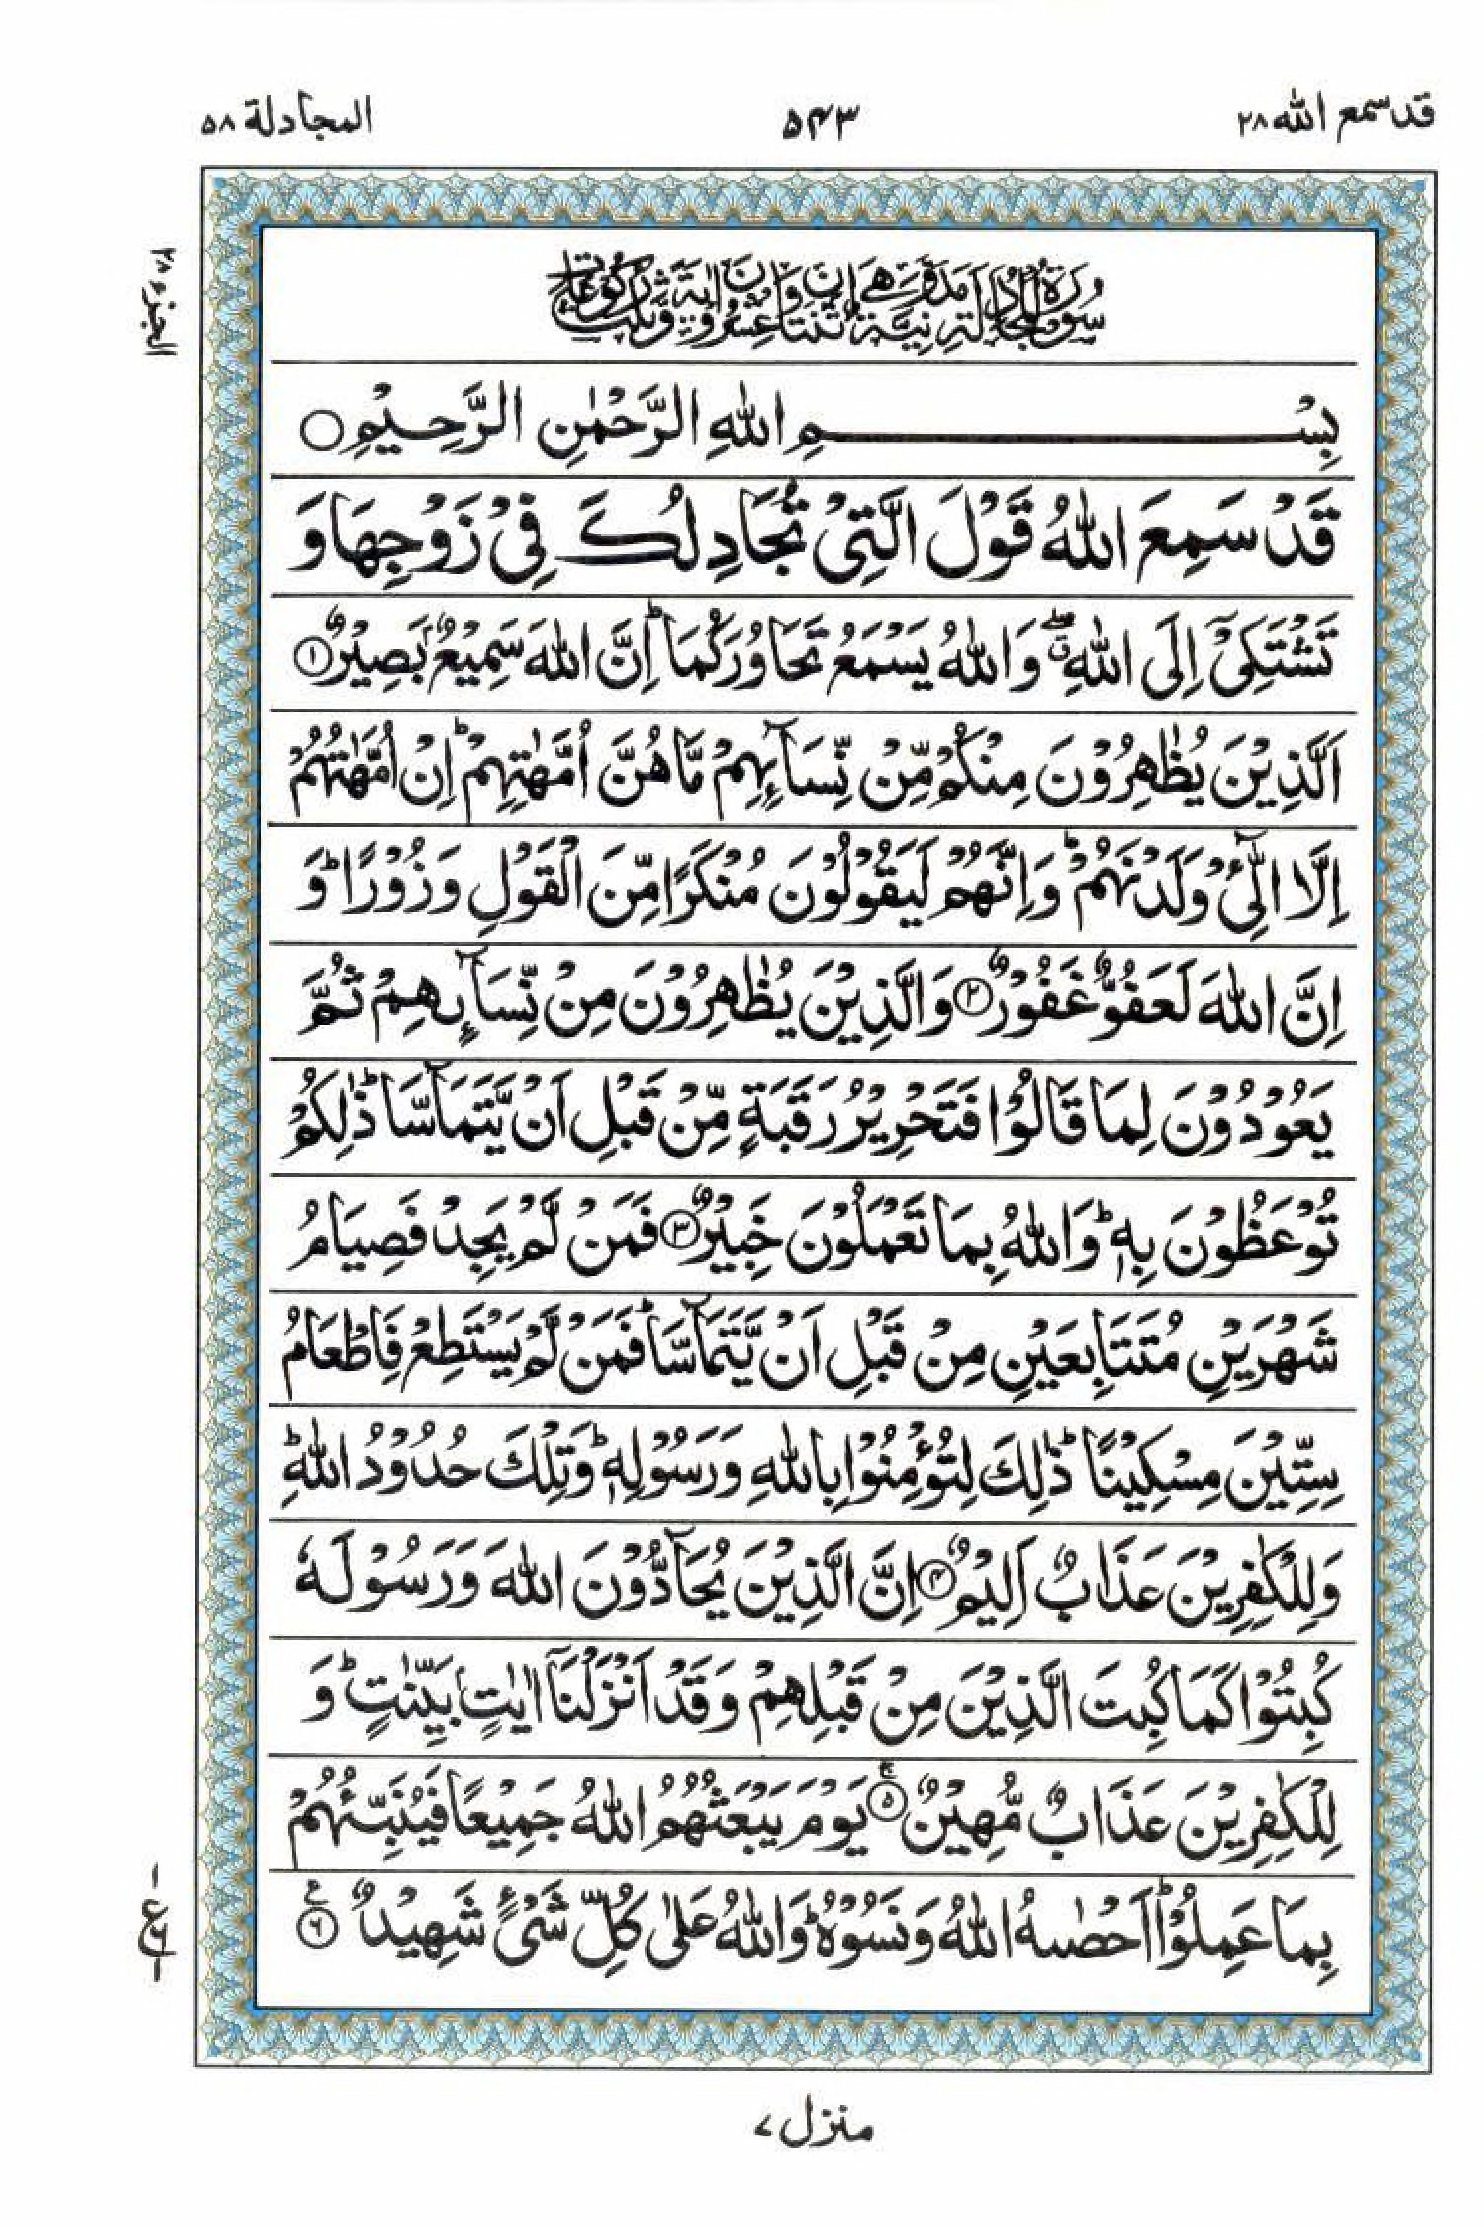 قد سمع الله ٢٨
۵۴۳
المجادلة ۵٨
الجزء ٢٨
سُوْرَةُ الْمُجَادَلَةِ مَدَنِيَّةٌ وَّهِيَ اثْنَتَانِ وَعِشْرُوْنَ اٰيَةً وَّثَلٰثُ رُكُوْعَاتٍ
بِسْمِ اللّٰهِ الرَّحْمٰنِ الرَّحِيْمِ ○
قَدْ سَمِعَ اللّٰهُ قَوْلَ الَّتِيْ تُجَادِلُكَ فِيْ زَوْجِهَا وَ
تَشْتَكِيْٓ اِلَى اللّٰهِ ۖق وَاللّٰهُ يَسْمَعُ تَحَاوُرَكُمَا ؕ اِنَّ اللّٰهَ سَمِيْعٌۢ بَصِيْرٌ ①
اَلَّذِيْنَ يُظٰهِرُوْنَ مِنْكُمْ مِّنْ نِّسَآىِٕهِمْ مَّا هُنَّ اُمَّهٰتِهِمْ ؕ اِنْ اُمَّهٰتُهُمْ
اِلَّا الّٰٓـِٔيْ وَلَدْنَهُمْ ؕ وَاِنَّهُمْ لَيَقُوْلُوْنَ مُنْكَرًا مِّنَ الْقَوْلِ وَزُوْرًا ؕ وَ
اِنَّ اللّٰهَ لَعَفُوٌّ غَفُوْرٌ ② وَالَّذِيْنَ يُظٰهِرُوْنَ مِنْ نِّسَآىِٕهِمْ ثُمَّ
يَعُوْدُوْنَ لِمَا قَالُوْا فَتَحْرِيْرُ رَقَبَةٍ مِّنْ قَبْلِ اَنْ يَّتَمَآسَّا ؕ ذٰلِكُمْ
تُوْعَظُوْنَ بِهٖ ؕ وَاللّٰهُ بِمَا تَعْمَلُوْنَ خَبِيْرٌ ③ فَمَنْ لَّمْ يَجِدْ فَصِيَامُ
شَهْرَيْنِ مُتَتَابِعَيْنِ مِنْ قَبْلِ اَنْ يَّتَمَآسَّا ؕ فَمَنْ لَّمْ يَسْتَطِعْ فَاِطْعَامُ
سِتِّيْنَ مِسْكِيْنًا ؕ ذٰلِكَ لِتُؤْمِنُوْا بِاللّٰهِ وَرَسُوْلِهٖ ؕ وَتِلْكَ حُدُوْدُ اللّٰهِ ؕ
وَلِلْكٰفِرِيْنَ عَذَابٌ اَلِيْمٌ ④ اِنَّ الَّذِيْنَ يُحَآدُّوْنَ اللّٰهَ وَرَسُوْلَهٗ
كُبِتُوْا كَمَا كُبِتَ الَّذِيْنَ مِنْ قَبْلِهِمْ وَقَدْ اَنْزَلْنَآ اٰيٰتٍۭ بَيِّنٰتٍ ؕ وَ
لِلْكٰفِرِيْنَ عَذَابٌ مُّهِيْنٌ ⑤ ۚ يَوْمَ يَبْعَثُهُمُ اللّٰهُ جَمِيْعًا فَيُنَبِّئُهُمْ
بِمَا عَمِلُوْا ؕ اَحْصٰىهُ اللّٰهُ وَنَسُوْهُ ؕ وَاللّٰهُ عَلٰى كُلِّ شَيْءٍ شَهِيْدٌ ⑥ ع
منزل ٧